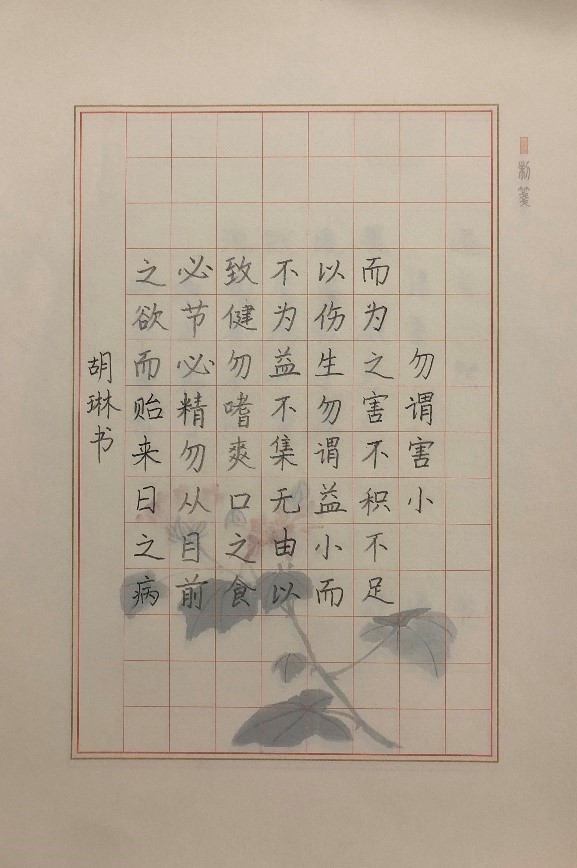 勿谓害小
而为之害不积不足
以伤生勿谓益小而
不为益不集无由以
致健勿嗜爽口之食
必节必精勿从目前
之欲而贻来日之病
胡琳书